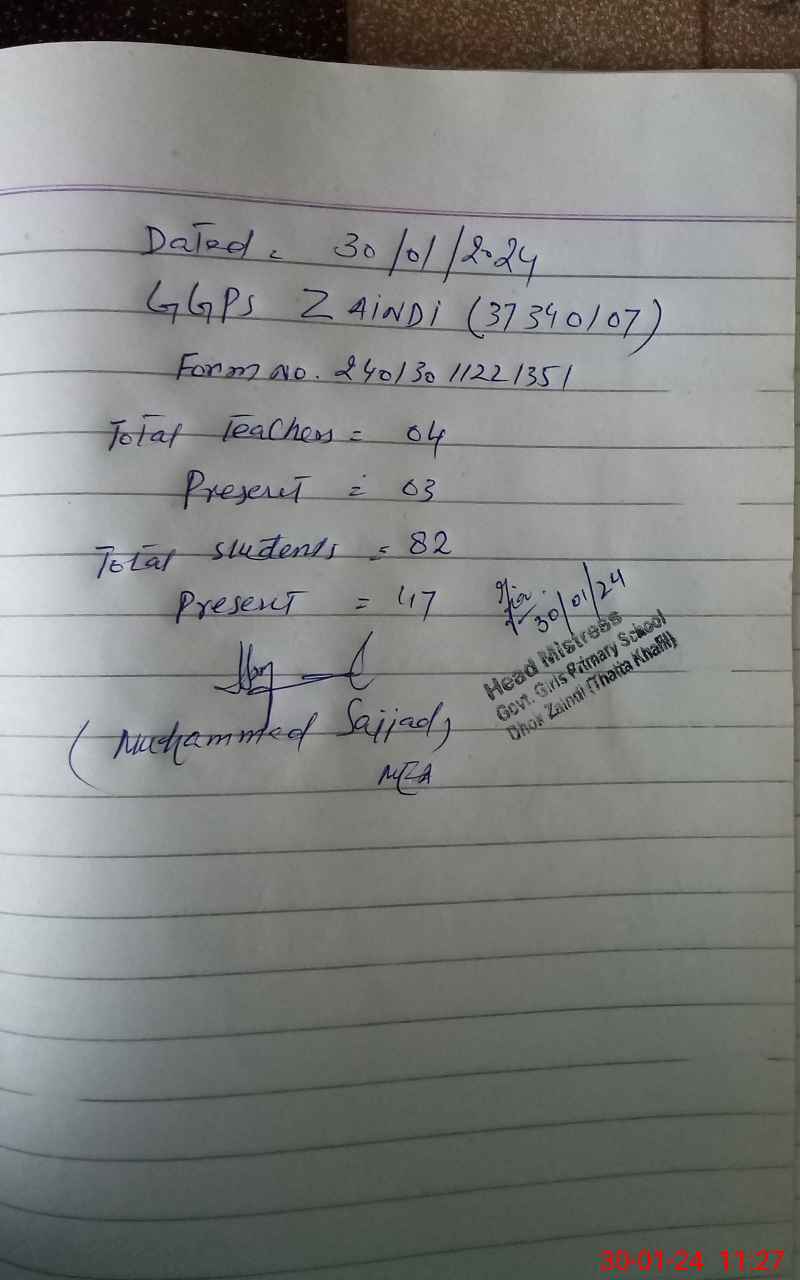 Dated = 30/01/2024
GGPS ZAINDI (37340107)
Form No. 24013011221351
Total Teachers = 04
Present = 03
Total students = 82
Present = 47
30/01/24
Head Mistress
Govt. Girls Primary School
Dhok Zaindi (Thatta Khalil)
(Muhammed Sajjad)
MEA
30-01-24 11:27